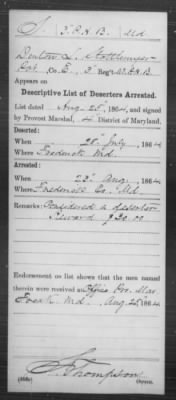 S. 3 P.H.B. Md
Denton L. Stottlemyer
Co. E, 3 Reg't P.H.B.
Appears on
Descriptive List of Deserters Arrested.
List dated Aug 25", 1864, and signed
by Provost Marshal, 4 District of Maryland.
Deserted:
When 28" July, 1864
Where Frederick Md.
Arrested:
When 22" Aug, 1864
Where Frederick Co. Md.
Remarks: Considered a deserter.
Reward $30.00
Endorsement on list shows that the men named
therein were received at Office Pro. Mar.
Fredk Md. Aug 25" 1864
S. Thompson
Copyist.